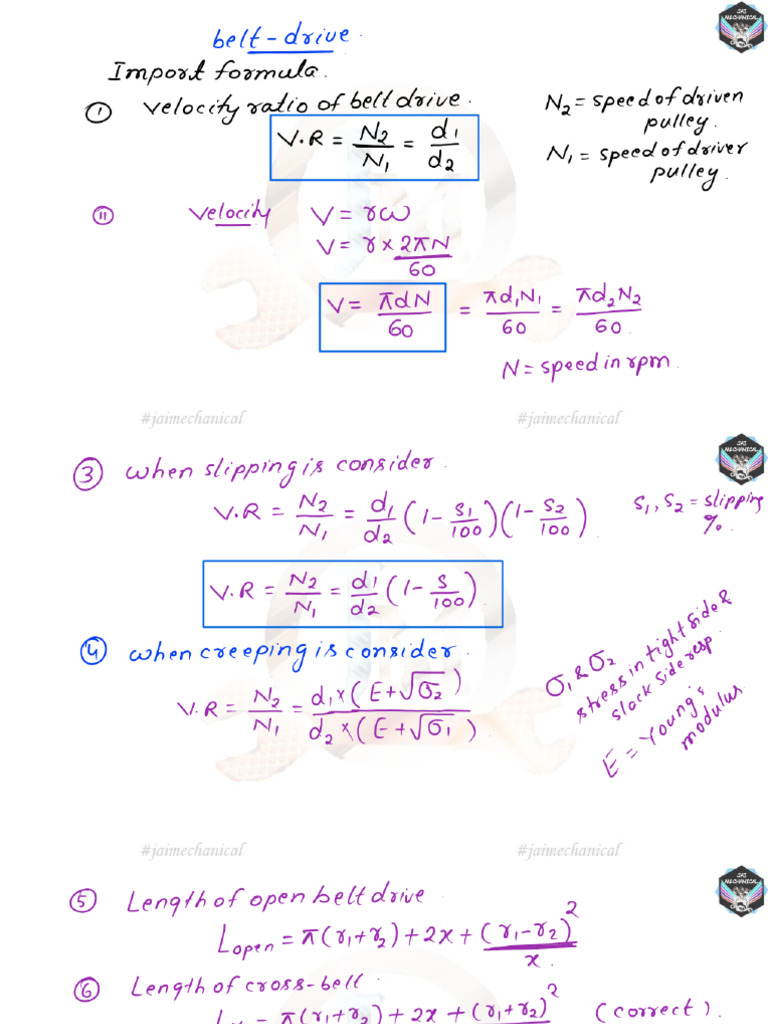 belt-drive.
Import formula.
① Velocity ratio of belt drive.
V.R = N₂/N₁ = d₁/d₂
N₂ = speed of driven pulley.
N₁ = speed of driver pulley.
⑪ Velocity V = rω
V = r × 2πN/60
V = πdN/60 = πd₁N₁/60 = πd₂N₂/60.
N = speed in rpm.
#jaimechanical #jaimechanical
JAI MECHANICAL
③ when slipping is consider.
V.R = N₂/N₁ = d₁/d₂ (1 - S₁/100)(1 - S₂/100)
S₁, S₂ = slipping %.
V.R = N₂/N₁ = d₁/d₂ (1 - S/100)
④ when creeping is consider.
V.R = N₂/N₁ = d₁×(E+√σ₂)/d₂×(E+√σ₁).
σ₁ & σ₂
stress in tight side &
slack side resp.
E = Young's
modulus
#jaimechanical #jaimechanical
JAI MECHANICAL
⑤ Length of open belt drive
L open = π(r₁+r₂)+2x+(r₁-r₂)²/x.
⑥ Length of cross-belt.
= π(r₁+r₂)+2x+(r₁+r₂)² (correct).